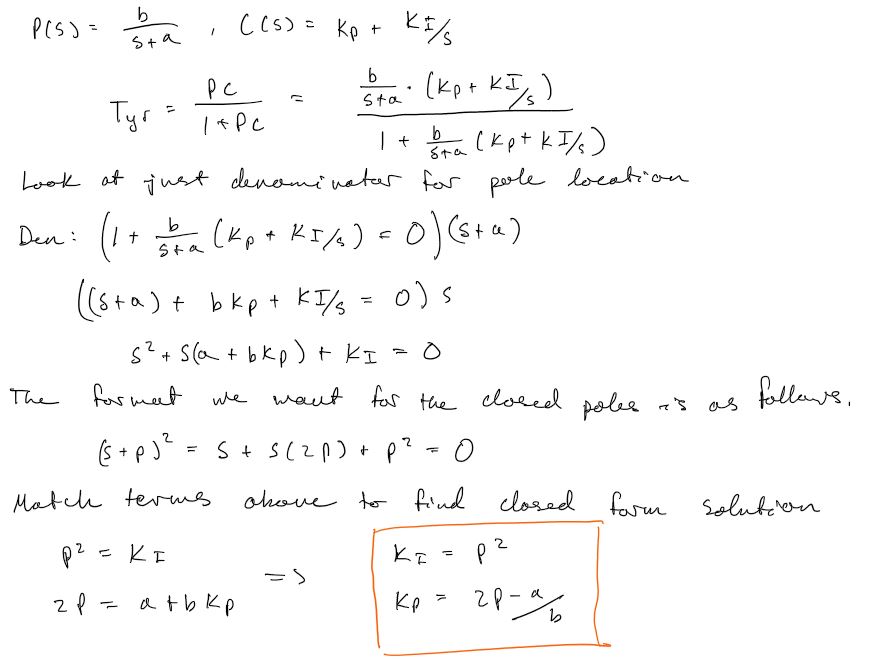 P(s) = b/(s+a) , C(s) = Kp + KI/s
Tyr = PC/(1+PC) = (b/(s+a) · (Kp + KI/s))/(1 + b/(s+a) (Kp + KI/s))
Look at just denominator for pole location
Den: (1 + b/(s+a) (Kp + KI/s) = 0)(s+a)
((s+a) + bKp + KI/s = 0) s
s² + s(a + bKp) + KI = 0
The format we want for the closed poles is as follows.
(s+p)² = s + s(2p) + p² = 0
Match terms above to find closed form solution
p² = KI
2p = a + bKp
=>
KI = p²
Kp = 2p - a/b